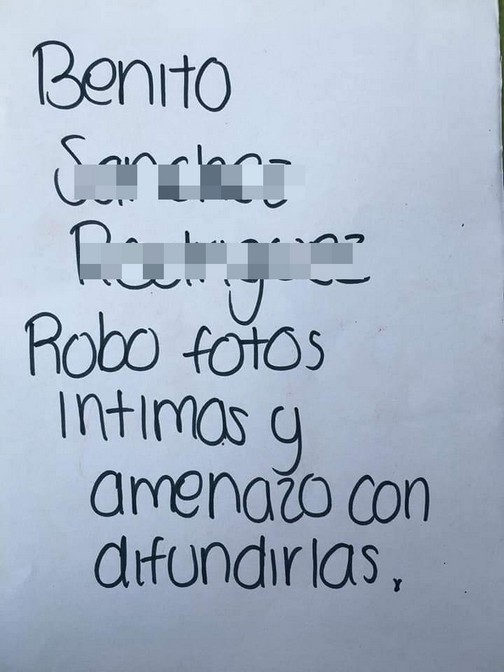 Benito
Robo fotos
intimas y
amenazo con
difundirlas.